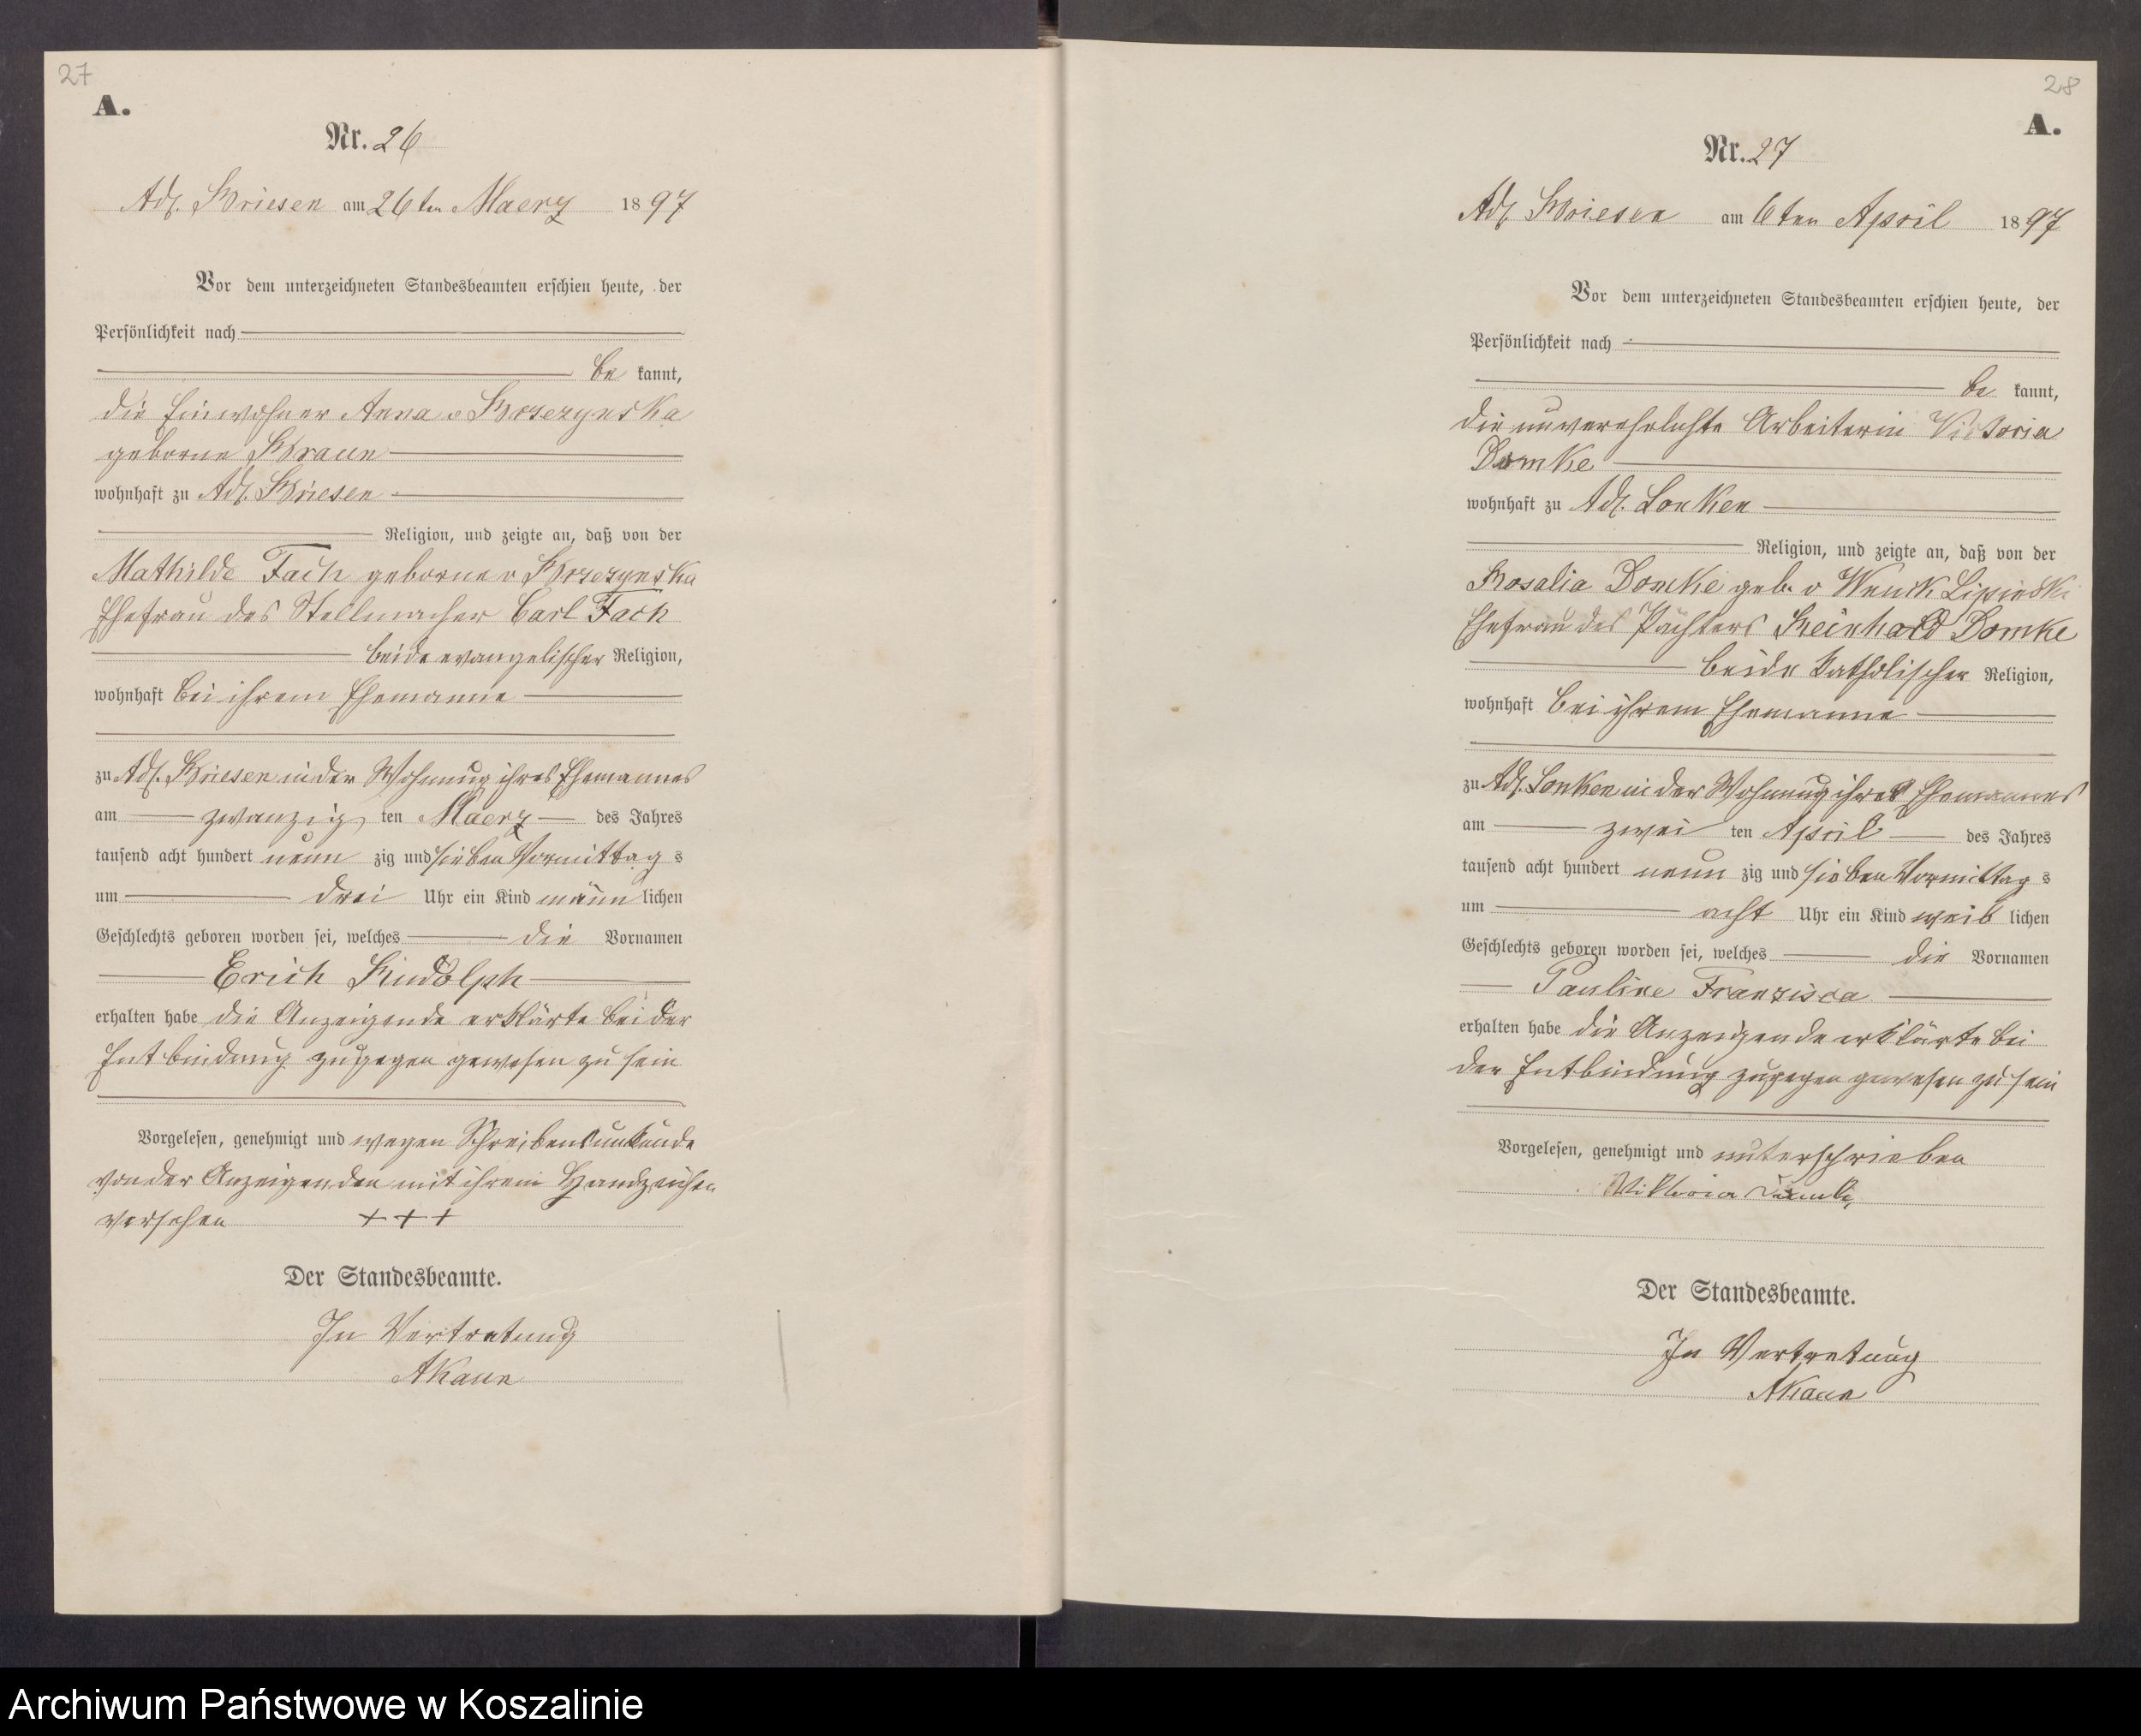 27
A.
Nr. 26
Adl. Briesen am 26ten Maerz 1897
Vor dem unterzeichneten Standesbeamten erschien heute, der
Persönlichkeit nach
be kannt,
die Einwohner Anna v Brzezynska
geborne Braun
wohnhaft zu Adl. Briesen
Religion, und zeigte an, daß von der
Mathilde Fach geborne v Brzezynska
Ehefrau des Stellmacher Carl Fach
beide evangelischer Religion,
wohnhaft bei ihrem Ehemanne
zu Adl. Briesen in der Wohnung ihres Ehemannes
am zwanzig ten Maerz des Jahres
tausend acht hundert neun zig und sieben Vormittag s
um drei Uhr ein Kind männ lichen
Geschlechts geboren worden sei, welches die Vornamen
Erich Rudolph
erhalten habe die Anzeigende erklärte bei der
Entbindung zugegen gewesen zu sein
Vorgelesen, genehmigt und wegen Schreibensunkunde
von der Anzeigenden mit ihrem Handzeichen
versehen +++
Der Standesbeamte.
In Vertretung
AKaun
28
A.
Nr. 27
Adl Briesen am 6ten April 1897
Vor dem unterzeichneten Standesbeamten erschien heute, der
Persönlichkeit nach
be kannt,
die unverehelichte Arbeiterin Victoria
Domke
wohnhaft zu Adl. Lonken
Religion, und zeigte an, daß von der
Rosalia Domke geb. v Wenk Lipinski
Ehefrau des Pächters Reinhard Domke
beide katholischer Religion,
wohnhaft bei ihrem Ehemanne
zu Adl. Lonken in der Wohnung ihres Ehemannes
am zwei ten April des Jahres
tausend acht hundert neun zig und sieben Vormittag s
um acht Uhr ein Kind weib lichen
Geschlechts geboren worden sei, welches die Vornamen
Pauline Franzisca
erhalten habe die Anzeigende erklärte bei
der Entbindung zugegen gewesen zu sein
Vorgelesen, genehmigt und unterschrieben
Viktoria
Der Standesbeamte.
In Vertretung
AKaun
Archiwum Państwowe w Koszalinie